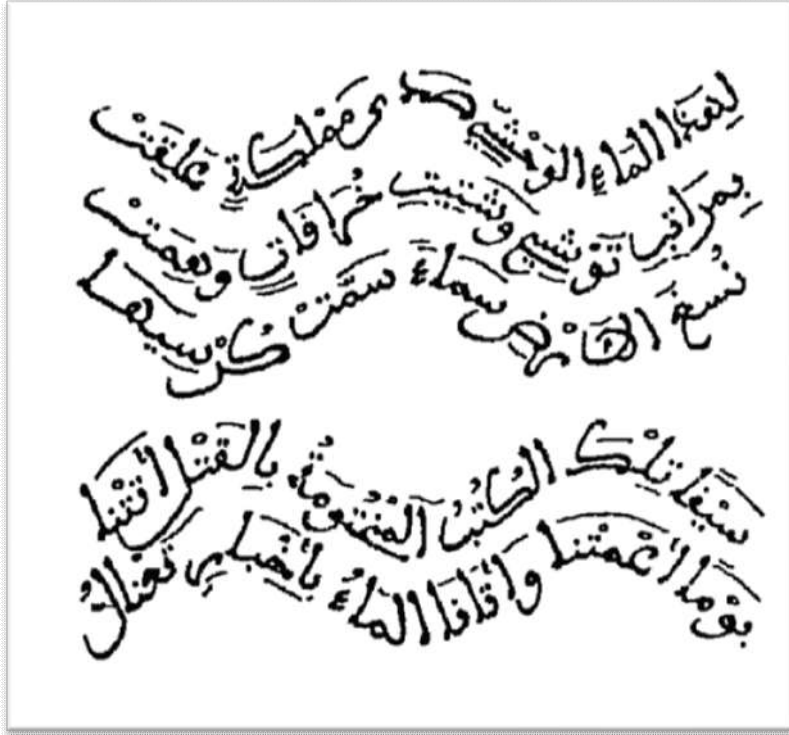 لغة الماء الوحشي صدى مملكة علقت
بمراتب توشيح وشتيت خرافات
نسغ الأرض سماء سمت كرسيها
تلك الكتب المختومة بالقتل أتتنا
يوما أعمتنا وأتانا الماء بأخبار تغتال